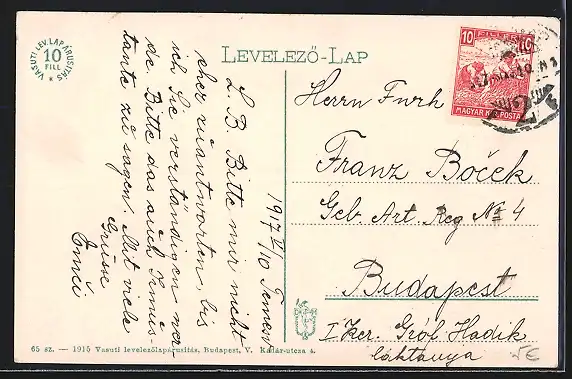 VASUTI LEV. LAP ÁRUSITÁS
10
FILL
LEVELEZŐ-LAP
10 FILLÉR 10
MAGYAR KIR. POSTA
1917 VI/10
L. B. Bitte mir nicht
eher zu antworten, bis
ich Sie verständigen
de. Bitte das auch
tante zu sagen. Mit viele
Grüsse
Herrn
Franz Boček
Geb. Art. Reg № 4
Budapest
I Ker. Gróf Hadik
laktanya
65 sz. — 1915 Vasuti levelezőlapárusitás, Budapest, V. Kálár-utcza 4.